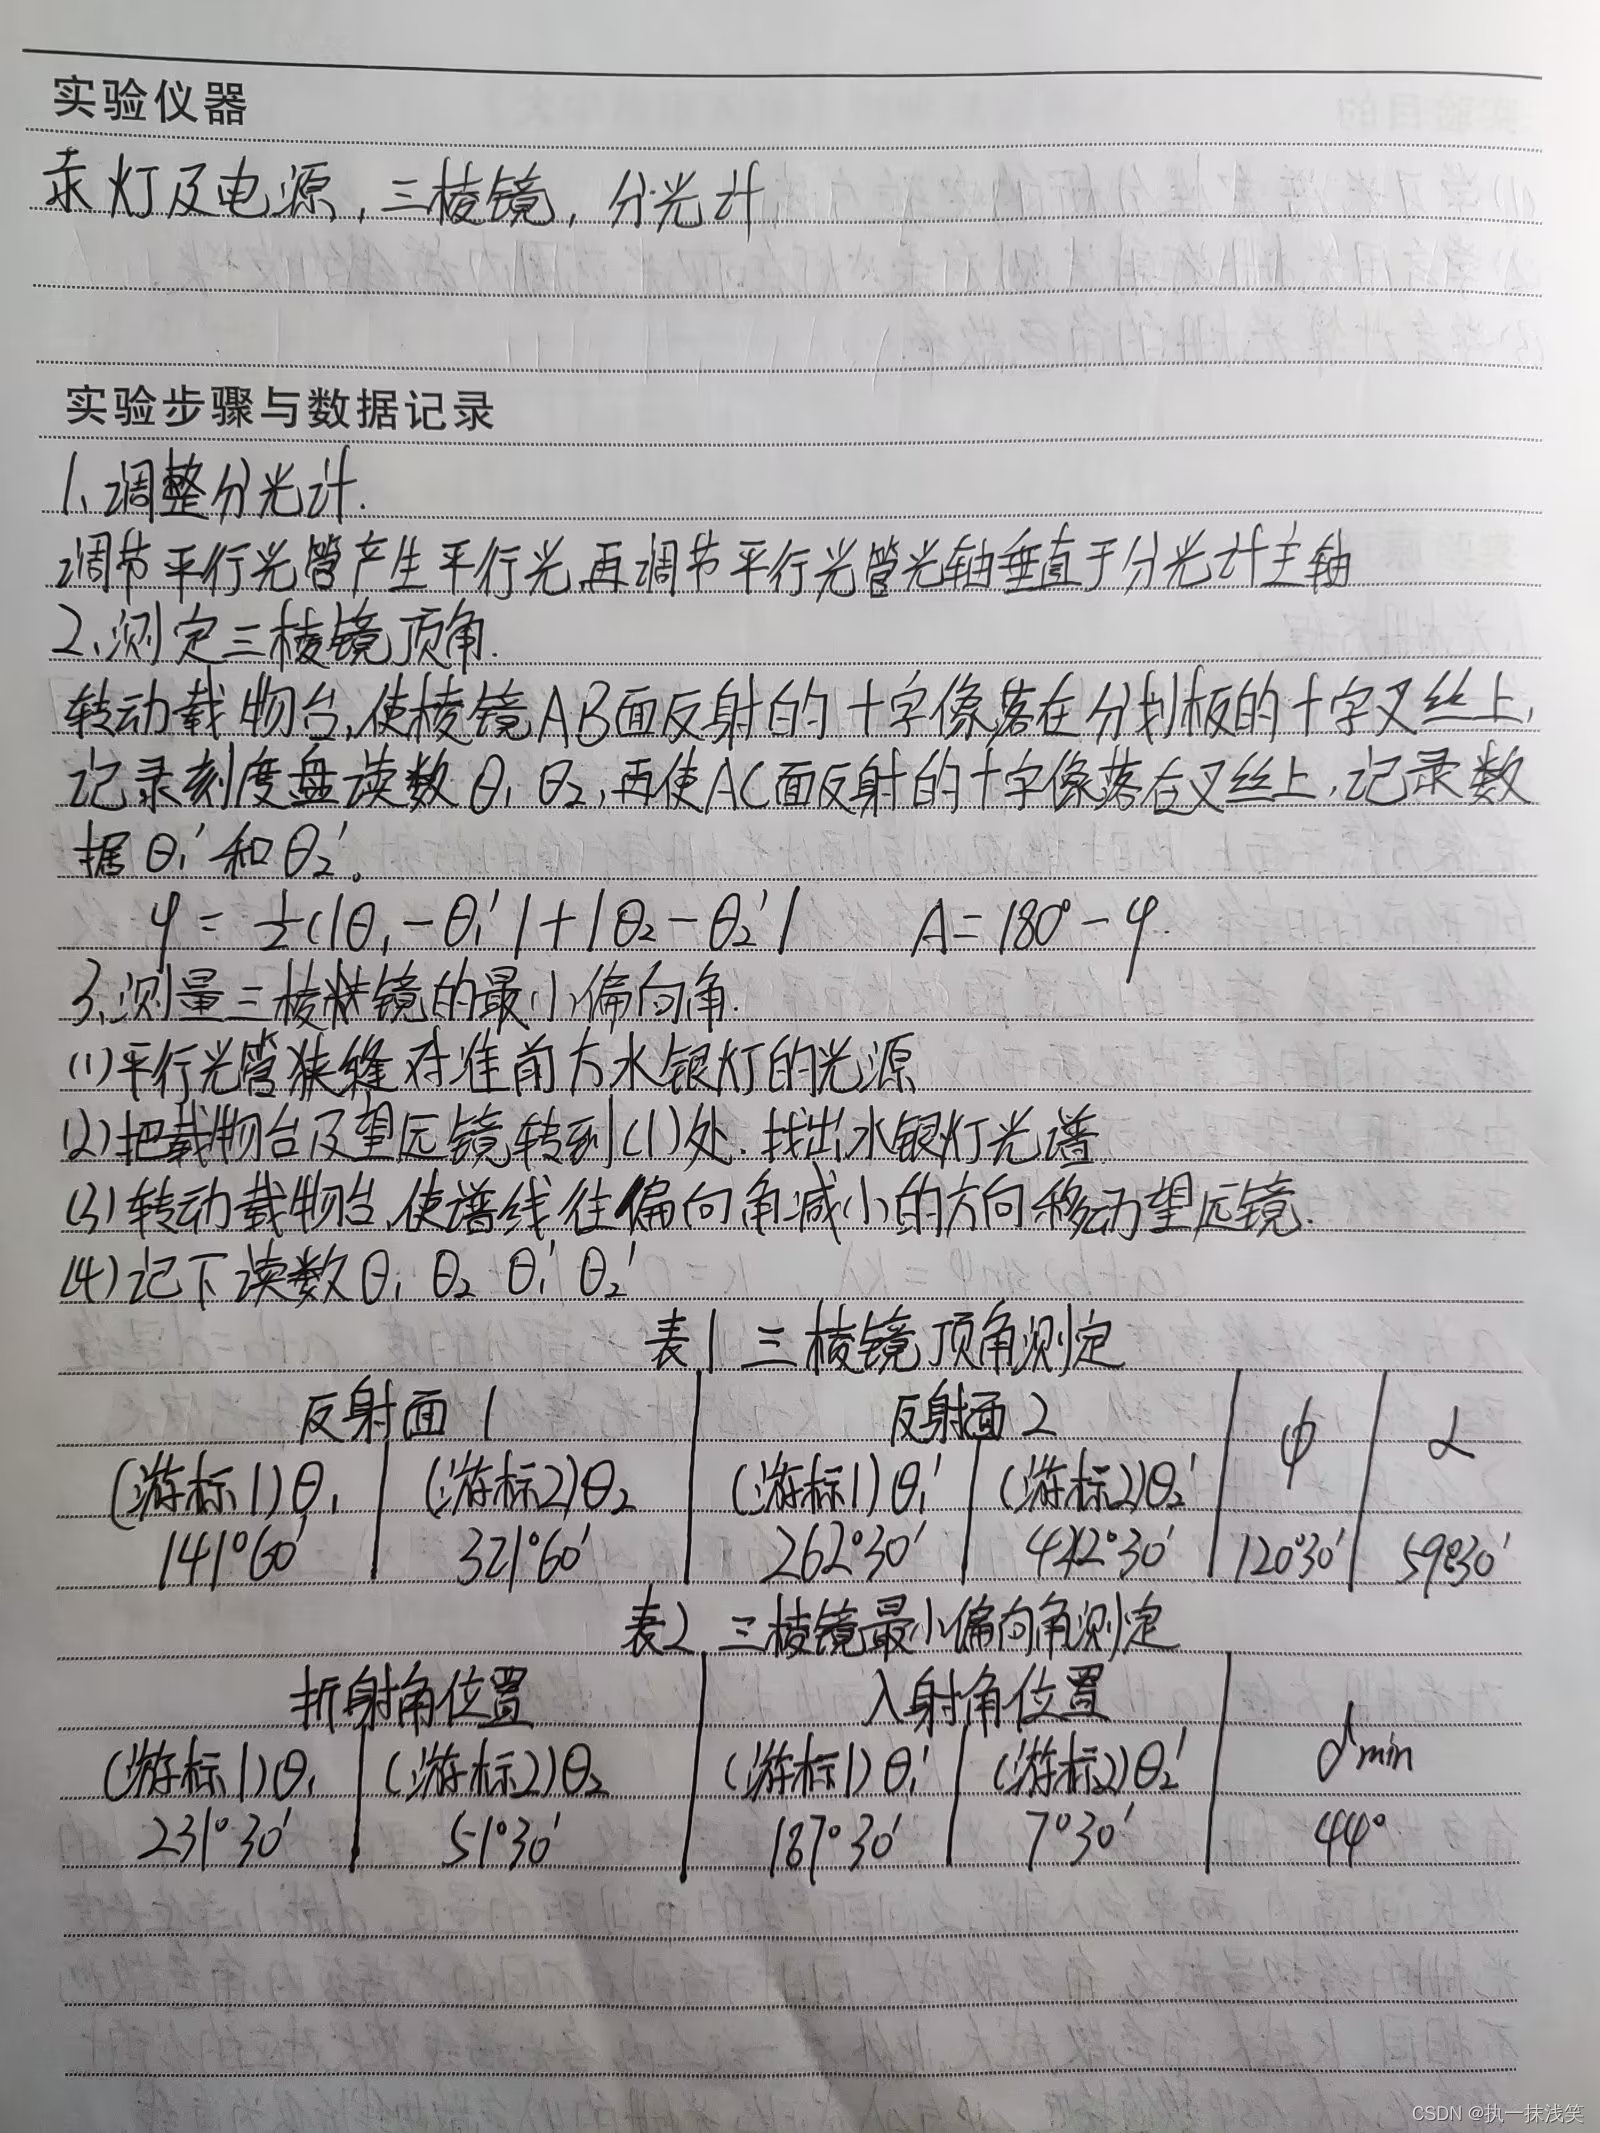 实验仪器
汞灯及电源,三棱镜,分光计
实验步骤与数据记录
1、调整分光计.
调节平行光管产生平行光,再调节平行光管光轴垂直于分光计主轴
2、测定三棱镜顶角.
转动载物台,使棱镜AB面反射的十字像落在分划板的十字叉丝上,
记录刻度盘读数θ₁ θ₂,再使AC面反射的十字像落在叉丝上,记录数
据θ₁′和θ₂′。
φ = ½(|θ₁-θ₁′|+|θ₂-θ₂′| A=180°-φ.
3、测量三棱镜的最小偏向角.
(1)平行光管狭缝对准前方水银灯的光源
(2)把载物台及望远镜转到(1)处.找出水银灯光谱
(3)转动载物台,使谱线往偏向角减小的方向移动望远镜.
(4)记下读数θ₁ θ₂ θ₁′ θ₂′
表1 三棱镜顶角测定
反射面1 反射面2 φ α
(游标1)θ₁ (游标2)θ₂ (游标1)θ₁′ (游标2)θ₂′
141°60′ 321°60′ 262°30′ 442°30′ 120°30′ 59°30′
表2 三棱镜最小偏向角测定
折射角位置 入射角位置 δmin
(游标1)θ₁ (游标2)θ₂ (游标1)θ₁′ (游标2)θ₂′
231°30′ 51°30′ 187°30′ 7°30′ 44°
CSDN @执一抹浅笑